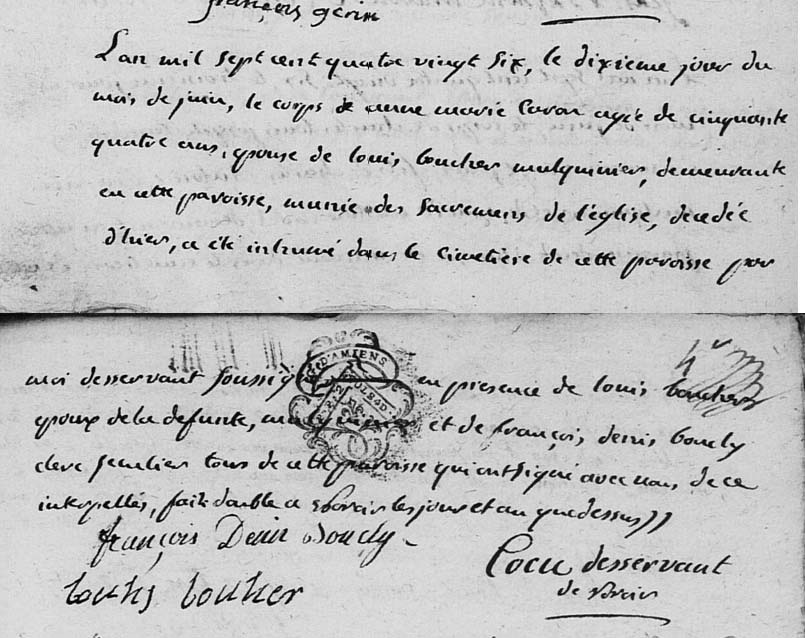 françois gérin
L'an mil sept cent quatre vingt six, le dixieme jour du
mois de juin, le corps de anne marie Caron agée de cinquante
quatre ans, epouse de louis boucher mulquinier, demeurante
en cette paroisse, munie des sacremens de l'église, decedée
d'hier, a été inhumé dans le cimetière de cette paroisse par
moi desservant soussigné en presence de louis boucher
D'AMIENS
epoux de la defunte, mulquinier et de françois denis boucly
clerc seculier tous de cette paroisse qui ont signé avec nous de ce
interpellés, fait double a les jour et an que dessus))
françois Denis Boucly
Cocu desservant
de
Louhis bouher